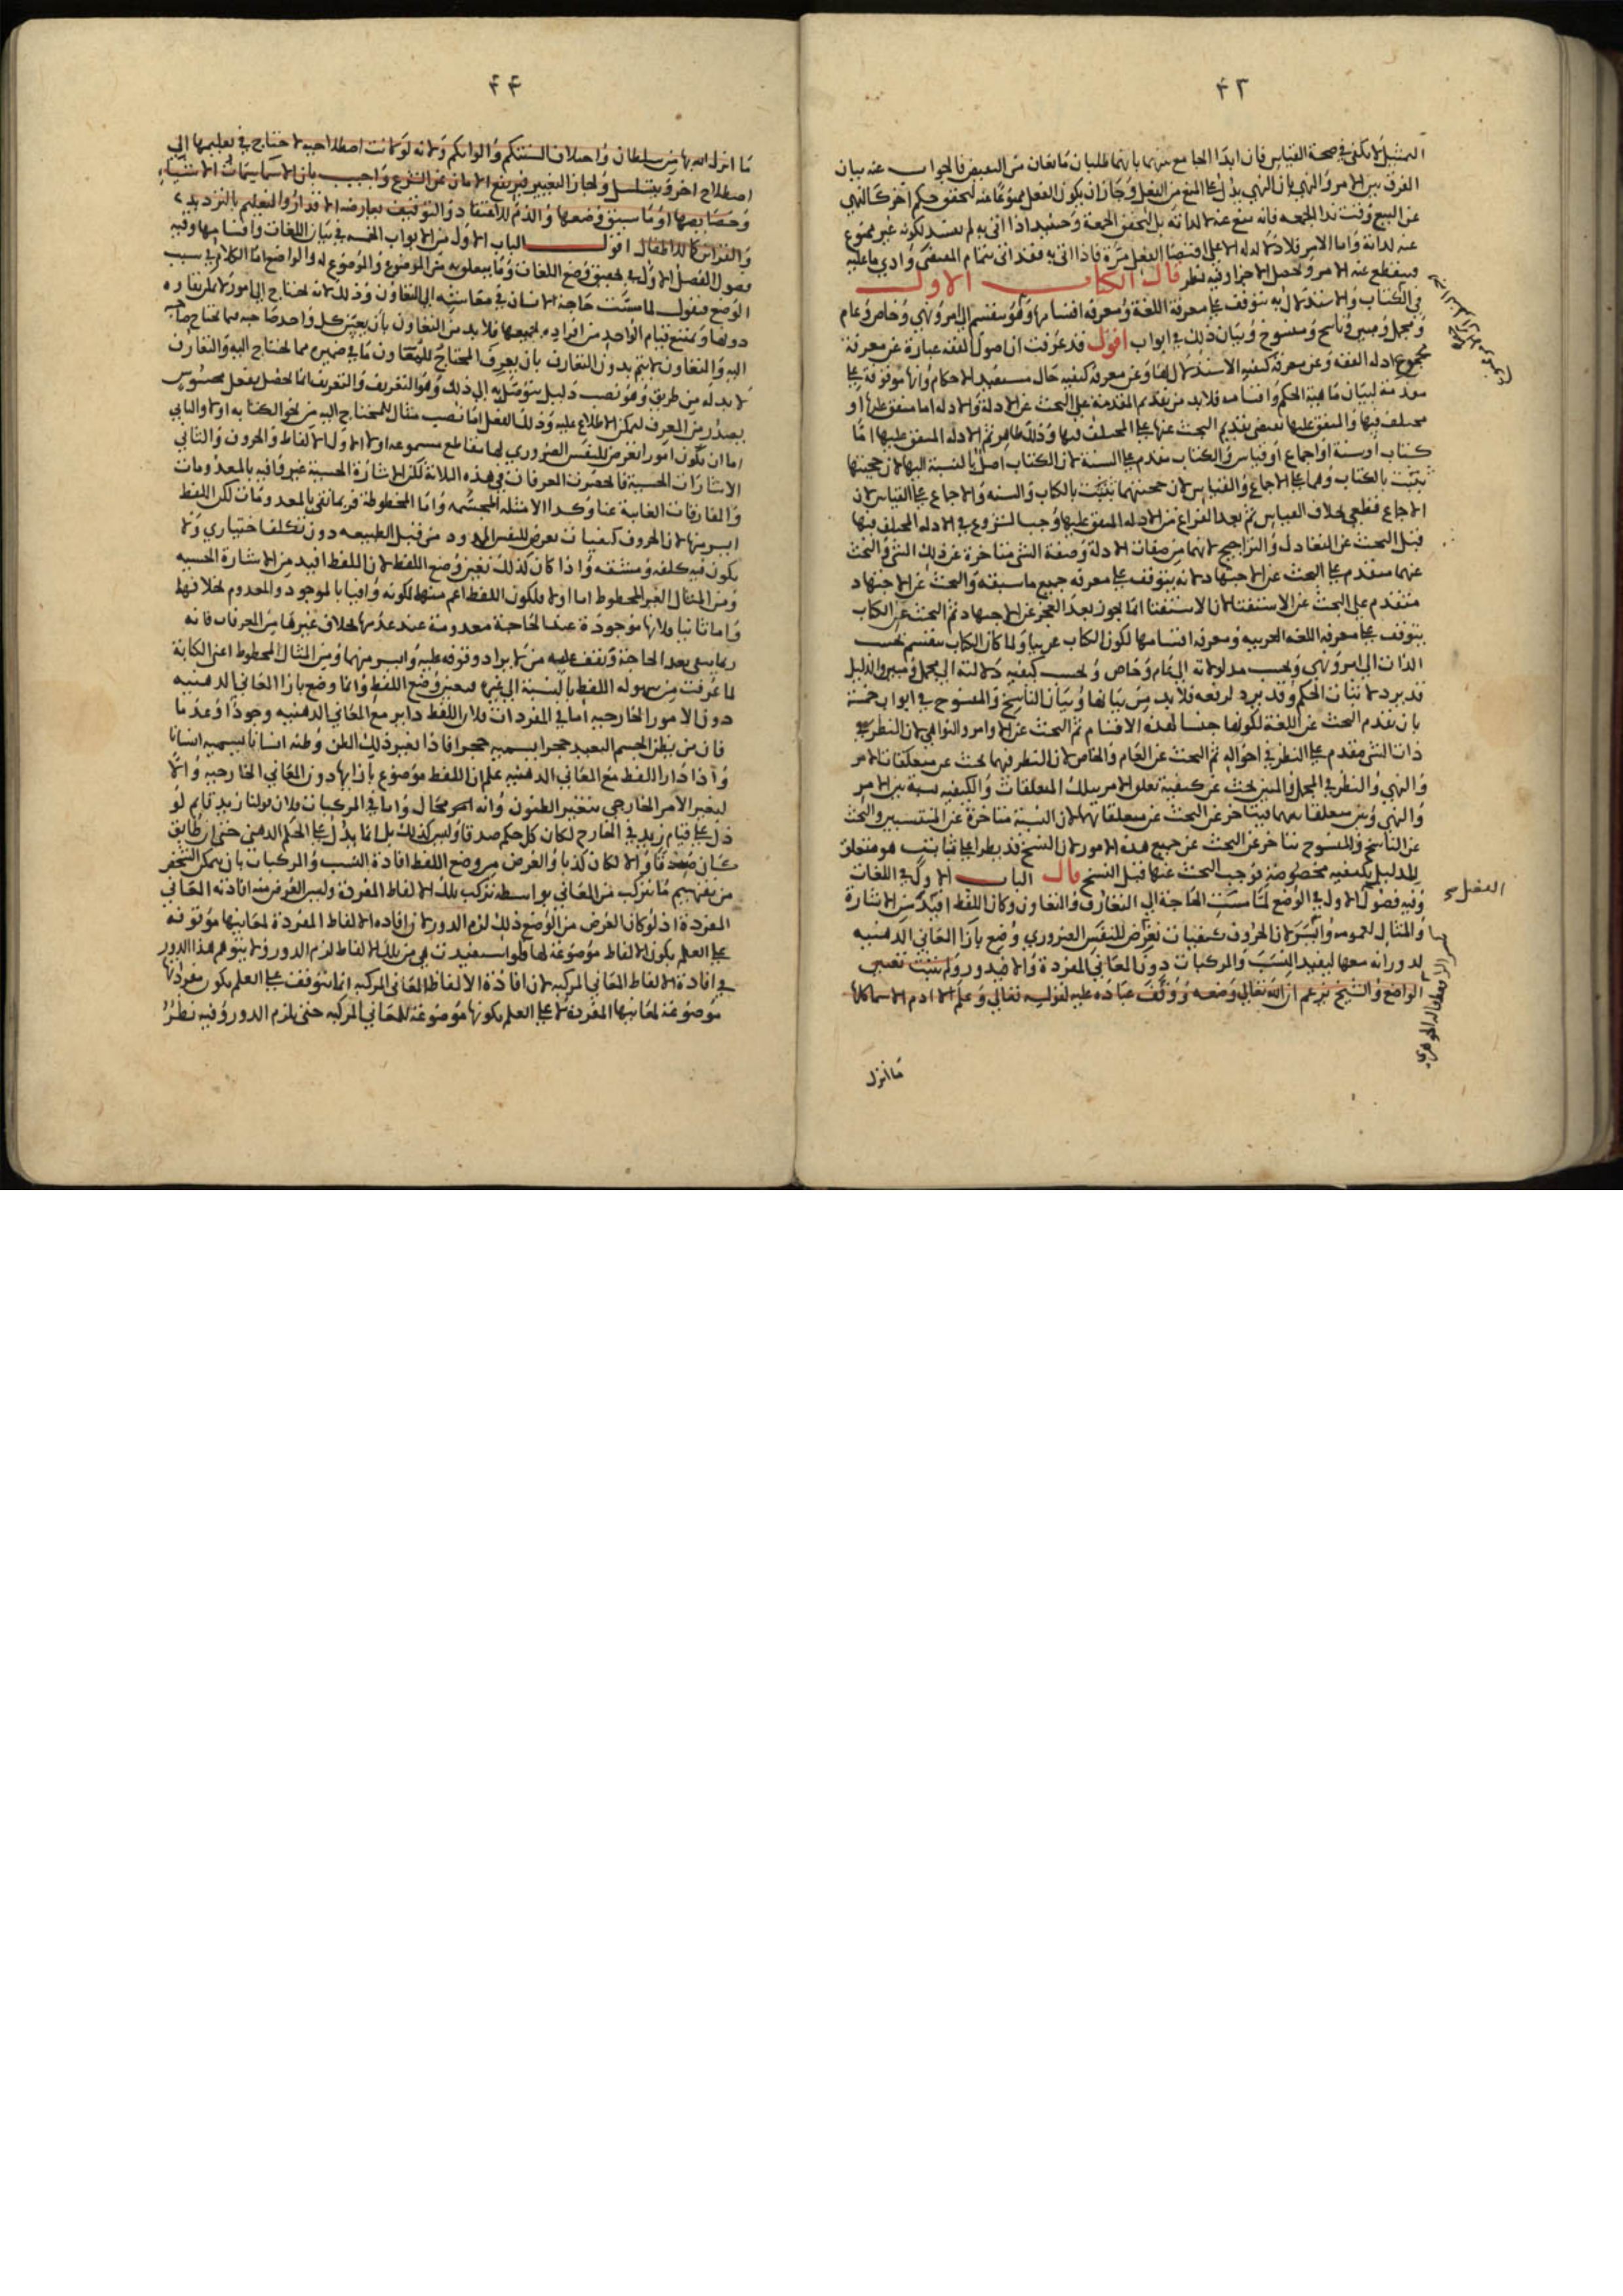 ٤٢
التمثيل لا يكفي في صحة القياس فان ابدا الجامع بينهما بانهما طلبان مانعان من النقيض فالجواب عنه ببيان
الفرق بين الامر والنهي بان النهي يدل على المنع من الفعل وجاز ان يكون الفعل ممنوعا عنه لتحقق حكم اخر كالنهي
عن البيع وقت ندا الجمعة فانه منع عنه لا لذاته بل لتحقق الجمعة وحينئذ اذا اتى به لم يفسد لكونه غير ممنوع
عنه لذاته واما الامر فلا دلالة له الا على اقتضا الفعل مرة فاذا اتى به فقد اتى بتمام المقتضى وادي ما عليه
فينقطع عنه الامر وتحصل الاجزا وفيه نظر قال الكتاب الاول
في الكتاب والاستدلال به يتوقف على معرفة اللغة ومعرفة اقسامها وهو ينقسم الى امر ونهي وخاص وعام
ومجمل ومبين وناسخ ومنسوخ وبيان ذلك في ابواب اقول قد عرفت ان اصول الفقه عبارة عن معرفة
مجموع ادلة الفقه وعن معرفة كيفية الاستدلال بها وعن معرفة كيفية حال مستفيد الاحكام وانها موقوفة على
مقدمة لبيان ماهية الحكم واقسامه فلا بد من تقديم المقدمة على البحث عن الادلة والادلة اما متفق عليها او
مختلف فيها والمتفق عليها تقتضي تقديم البحث عنها على المختلف فيها وذلك ظاهر ثم الادلة المتفق عليها اما
كتاب او سنة او اجماع او قياس والكتاب مقدم على السنة لان الكتاب اصل بالنسبة اليها لان حجيتها
تثبت بالكتاب وهما على الاجماع والقياس لان حجيتهما تثبت بالكتاب والسنة والاجماع على القياس لان
الاجماع قطعي بخلاف القياس ثم بعد الفراغ من الادلة المتفق عليها وجب الشروع في الادلة المختلف فيها
قبل البحث عن التعادل والتراجيح لانهما من صفات الادلة وصفة الشي متاخرة عن ذلك الشي والبحث
عنهما مقدم على البحث عن الاجتهاد لانه يتوقف على معرفة جميع ما سبقه والبحث عن الاجتهاد
متقدم على البحث عن الاستفتا لان الاستفتا انما يجوز بعد العجز عن الاجتهاد ثم البحث عن الكتاب
يتوقف على معرفة اللغة العربية ومعرفة اقسامها لكون الكتاب عربيا ولما كان الكتاب ينقسم بحسب
الذات الى امر ونهي وبحسب مدلولاته الى عام وخاص وبحسب كيفية دلالته الى مجمل ومبين والدليل
قد يرد لاثبات الحكم وقد يرد لرفعه فلا بد من بيانها وبيان الناسخ والمنسوخ في ابواب خمسة
بان يقدم البحث عن اللغة لكونها جنسا لهذه الاقسام ثم البحث عن الاوامر والنواهي لان النظر في
ذات الشي مقدم على النظر في احواله ثم البحث عن العام والخاص لان النظر فيهما بحث عن متعلقات الامر
والنهي والنظر في المجمل والمبين بحث عن كيفية تعلق الامر بتلك المتعلقات والكيفية نسبة بين الامر
والنهي وبين متعلقاتهما فيتاخر عن البحث عن متعلقاتهما لان النسبة متاخرة عن المنتسبين والبحث
عن الناسخ والمنسوخ متاخر عن البحث عن جميع هذه الامور لان النسخ قد يطرا على ثابت هو متعلق
للدليل بكيفية مخصوصة فوجب البحث عنها قبل النسخ قال الباب الاول في اللغات
وفيه فصول الاول في الوضع لما مست الحاجة الى التعارف والتعاون وكان اللفظ افيد من الاشارة
والمثال لعمومه وايسر لان الحروف كيفيات تعرض للنفس الضروري وضع بازا المعاني الذهنية
لدورانه معها ليفيد النسب والمركبات دون المعاني المفردة والا فيدور ولم يثبت تعيين
الواضع والشيخ يزعم ان الله تعالى وضعه ووقف عباده عليه لقوله تعالى وعلم ادم الاسما كلها
الفصل
ما انزل
٤٤
ما انزل الله بها من سلطان واختلاف السنتكم والوانكم ولانه لو كانت اصطلاحية لاحتاج في تعليمها الى
اصطلاح اخر ويتسلسل ولجاز التغيير فيرتفع الامان عن الشرع واجيب بان الاسما سمات الاشياء
وخصايصها او ما سبق وضعها والذم للاعتقاد والتوقيف يعارضه الاقدار والتعليم بالترديد
والقراين كما للاطفال اقول الباب الاول من الابواب الخمسة في بيان اللغات واقسامها وفيه
فصول الفصل الاول في تحقيق وضع اللغات وما يتعلق به من الموضوع والموضوع له والواضع اما الكلام في سبب
الوضع فنقول لما مست حاجة الانسان في معايشته الى التعاون وذلك لانه يحتاج الى امور لا بقا له
دونها ويمتنع قيام الواحد من افراده بجميعها فلا بد من التعاون بان يعين كل واحد صاحبه فيما يحتاج صاحبه
اليه والتعاون لا يتم بدون التعارف بان يعرف المحتاج للمعاون ما في ضميره مما يحتاج اليه والتعارف
لا بد له من طريق وهو نصب دليل يتوصل به الى ذلك وهو التعريف والتعريف انما يحصل بفعل محسوس
يصدر من المعرف ليمكن الاطلاع عليه وذلك الفعل اما نصب مثال للمحتاج اليه من نحو الكتابة او لا والثاني
اما ان تكون امورا تعرض للنفس الضروري لها مقاطع مسموعة او لا الاول الالفاظ والحروف والثاني
الاشارات الحسية فانحصرت المعرفات في هذه الثلاثة لكن الاشارة الحسية غير وافية بالمعدومات
والمفارقات الغايبة عنا وكذا الامثلة المجسمة واما المخطوطة فربما تفي بالمعدومات لكن اللفظ
ايسر منها لان الحروف كيفيات تعرض للنفس الممدود من قبل الطبيعة دون تكلف اختياري ولا
يكون فيه كلفة ومشقة واذا كان كذلك تعين وضع اللفظ لان اللفظ افيد من الاشارة الحسية
ومن المثال الغير المخطوط اما اولا فلكون اللفظ اعم منهما لكونه وافيا بالموجود والمعدوم بخلافهما
واما ثانيا فلانها موجودة عند الحاجة معدومة عند عدمها بخلاف غيرها من المعرفات فانه
ربما يبقى بعد الحاجة ويقف عليه من لا يراد وقوفه عليه وايسر منهما ومن المثال المخطوط اعني الكتابة
لما عرفت من سهولة اللفظ بالنسبة الى غيره فتعين وضع اللفظ وانما وضع بازا المعاني الذهنية
دون الامور الخارجية اما في المفردات فلان اللفظ داير مع المعاني الذهنية وجودا وعدما
فان من يظن الجسم البعيد حجرا يسميه حجرا فاذا تغير ذلك الظن وظنه انسانا يسميه انسانا
واذا دار اللفظ مع المعاني الذهنية علم ان اللفظ موضوع بازايها دون المعاني الخارجية والا
لتغير الامر الخارجي بتغير الظنون وانه محال واما في المركبات فلان قولنا زيد قايم لو
دل على قيام زيد في الخارج لكان كل حكم صدقا وليس كذلك بل انما يدل على الحكم الذهني حتى ان طابق
كان صدقا والا لكان كذبا والغرض من وضع اللفظ افادة النسب والمركبات بان يمكن الشخص
من تفهيم ما يتركب من المعاني بواسطة تركيب تلك الالفاظ المفردة وليس الغرض منه افادته المعاني
المفردة اذ لو كان الغرض من الوضع ذلك لزم الدور لان افادة الالفاظ المفردة لمعانيها موقوفة
على العلم بكون الالفاظ موضوعة لها فلو استفيدت هي من تلك الالفاظ لزم الدور ولا يتوهم هذا الدور
في افادة الالفاظ المعاني المركبة لان افادة الالفاظ المعاني المركبة انما تتوقف على العلم بكون مفرداتها
موضوعة لمعانيها المفردة لا على العلم بكونها موضوعة للمعاني المركبة حتى يلزم الدور وفيه نظر